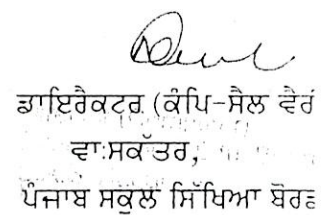 ਡਾਇਰੈਕਟਰ (ਕੰਪਿ-ਸੈਲ ਵੈਰੀ
ਵਾ:ਸਕੱਤਰ,
ਪੰਜਾਬ ਸਕੂਲ ਸਿੱਖਿਆ ਬੋਰਡ